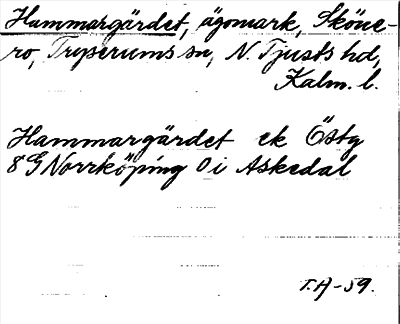 Hammargärdet, ägomark, Sköne-
ro, Tryserums sn, N. Tjusts hd,
Kalm. l.
Hammargärdet ek Östg
8G Norrköping 0 i Askedal
T.A-59.